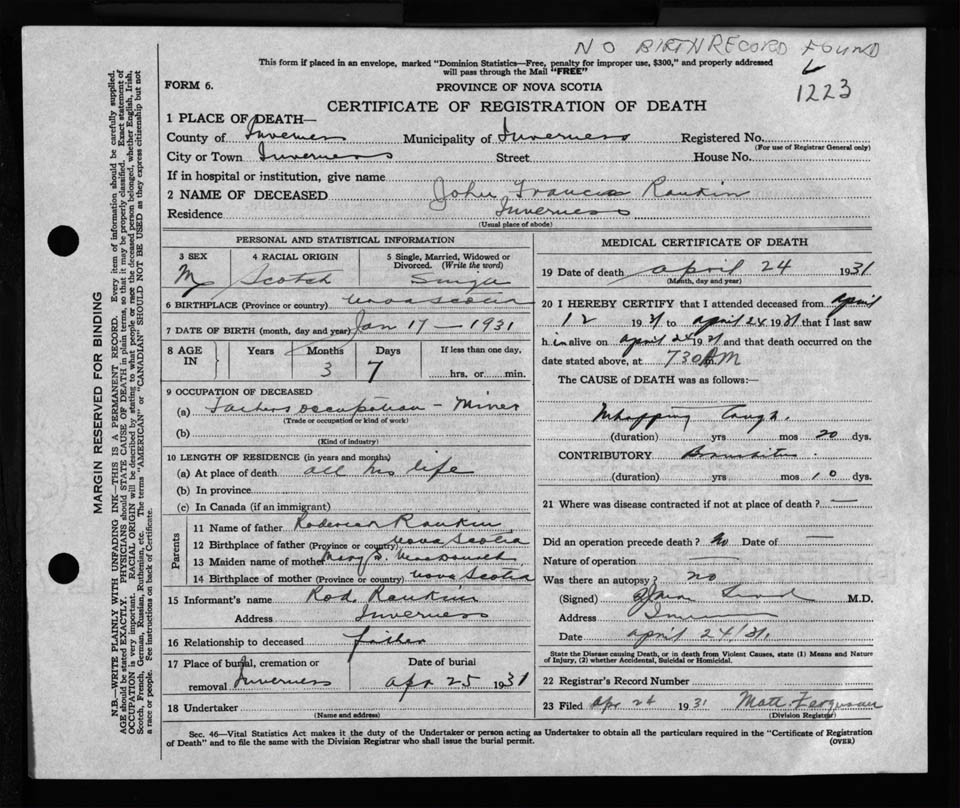 NO BIRTH RECORD FOUND
This form if placed in an envelope, marked "Dominion Statistics—Free, penalty for improper use, $300," and properly addressed
will pass through the Mail "FREE"
1223
FORM 6.
PROVINCE OF NOVA SCOTIA
CERTIFICATE OF REGISTRATION OF DEATH
1 PLACE OF DEATH—
County of Inverness Municipality of Inverness Registered No.
(For use of Registrar General only)
City or Town Inverness Street House No.
If in hospital or institution, give name
2 NAME OF DECEASED John Francis Rankin
Residence Inverness
(Usual place of abode)
PERSONAL AND STATISTICAL INFORMATION
3 SEX 4 RACIAL ORIGIN 5 Single, Married, Widowed or
Divorced. (Write the word)
M Scotch Single
6 BIRTHPLACE (Province or country) Nova Scotia
7 DATE OF BIRTH (month, day and year) Jan 17 — 1931
8 AGE IN Years Months Days If less than one day,
3 7 hrs. or min.
9 OCCUPATION OF DECEASED
(a) Fathers occupation - Miner
(Trade or occupation or kind of work)
(b)
(Kind of industry)
10 LENGTH OF RESIDENCE (in years and months)
(a) At place of death all his life
(b) In province
(c) In Canada (if an immigrant)
Parents
11 Name of father Roderick Rankin
12 Birthplace of father (Province or country) Nova Scotia
13 Maiden name of mother Mary
14 Birthplace of mother (Province or country) Nova Scotia
15 Informant's name Rod. Rankin
Address Inverness
16 Relationship to deceased father
17 Place of burial, cremation or Date of burial
removal Inverness Apr 25 1931
18 Undertaker
(Name and address)
MEDICAL CERTIFICATE OF DEATH
19 Date of death April 24 1931
(Month, day and year)
20 I HEREBY CERTIFY that I attended deceased from April
12 1931 to April 24 1931 that I last saw
h im alive on April 24 1931 and that death occurred on the
date stated above, at 730 AM
The CAUSE of DEATH was as follows:
Whooping Cough.
(duration) yrs mos 20 dys.
CONTRIBUTORY Bronchitis
(duration) yrs mos 10 dys.
21 Where was disease contracted if not at place of death? —
Did an operation precede death? No Date of —
Nature of operation
Was there an autopsy? no
(Signed) M.D.
Address
Date April 24/31.
State the Disease causing Death, or in death from Violent Causes, state (1) Means and Nature
of Injury, (2) whether Accidental, Suicidal or Homicidal.
22 Registrar's Record Number
23 Filed Apr 24 1931 Matt. Ferguson
(Division Registrar)
Sec. 46—Vital Statistics Act makes it the duty of the Undertaker or person acting as Undertaker to obtain all the particulars required in the "Certificate of Registration
of Death" and to file the same with the Division Registrar who shall issue the burial permit.
(OVER)
MARGIN RESERVED FOR BINDING
N.B.—WRITE PLAINLY WITH UNFADING INK—THIS IS A PERMANENT RECORD. Every item of information should be carefully supplied.
AGE should be stated EXACTLY. PHYSICIANS should STATE CAUSE OF DEATH in plain terms, so that it may be properly classified. Exact statement of
OCCUPATION is very important. RACIAL ORIGIN will be described by stating to what people or race the deceased person belonged, whether English, Irish,
Scotch, French, German, Russian, Ruthenian, etc. The terms "AMERICAN" or "CANADIAN" SHOULD NOT BE USED as they express citizenship but not
a race or people. See instructions on back of Certificate.